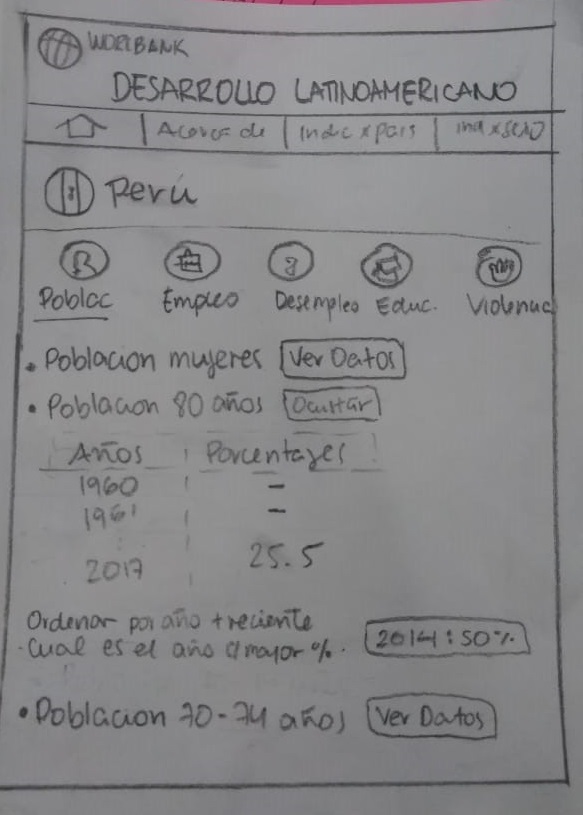 WORLBANK
DESARROLLO LATINOAMERICANO
Acerca de | Indic x pais | ind x sexo
Perú
Poblac Empleo Desempleo Educ. Violenc
• Poblacion mujeres Ver Datos
• Poblacion 80 años Ocultar
Años Porcentajes
1960 -
1961 -
2017 25.5
Ordenar por año + reciente
Cual es el año c/ mayor %. 2014 : 50%
• Poblacion 70-74 años Ver Datos